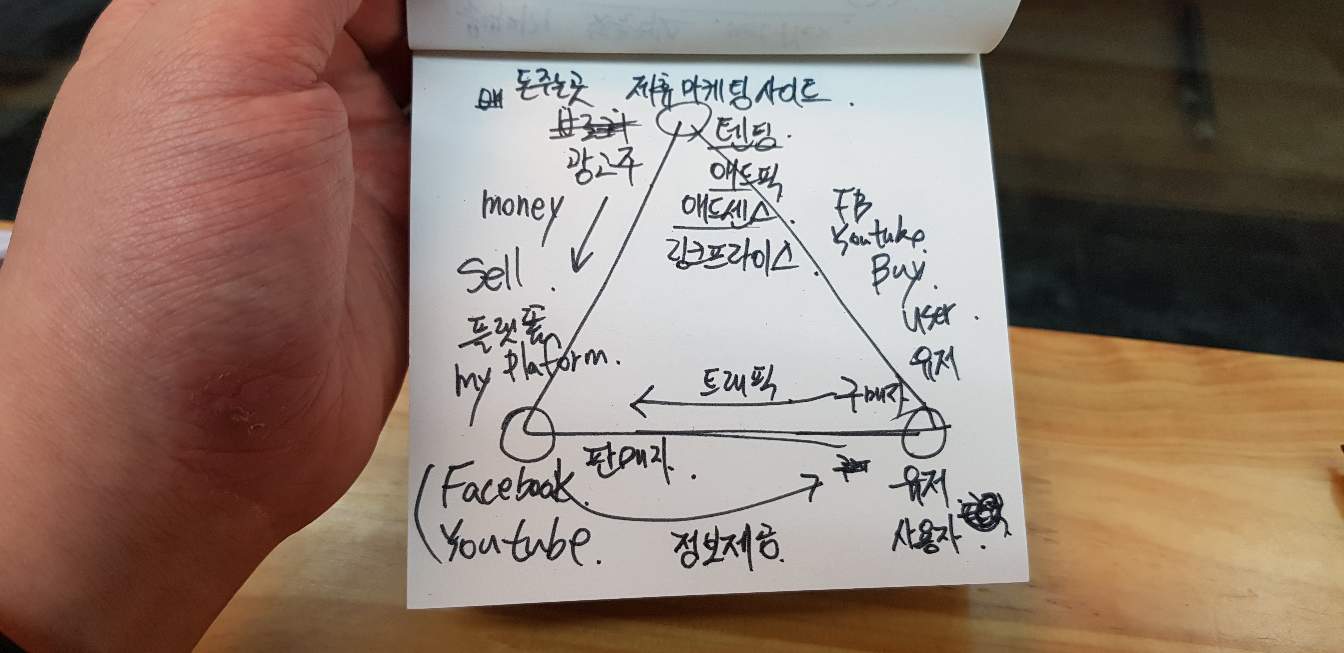 돈주는곳 제휴마케팅사이트.
광고주
텐핑.
애드픽
애드센스.
링크프라이스.
money
Sell.
플랫폼
my Platform.
FB
Youtube.
Buy.
user.
유저
트래픽
구매자
판매자.
(Facebook.
Youtube.
정보제공.
유저
사용자.